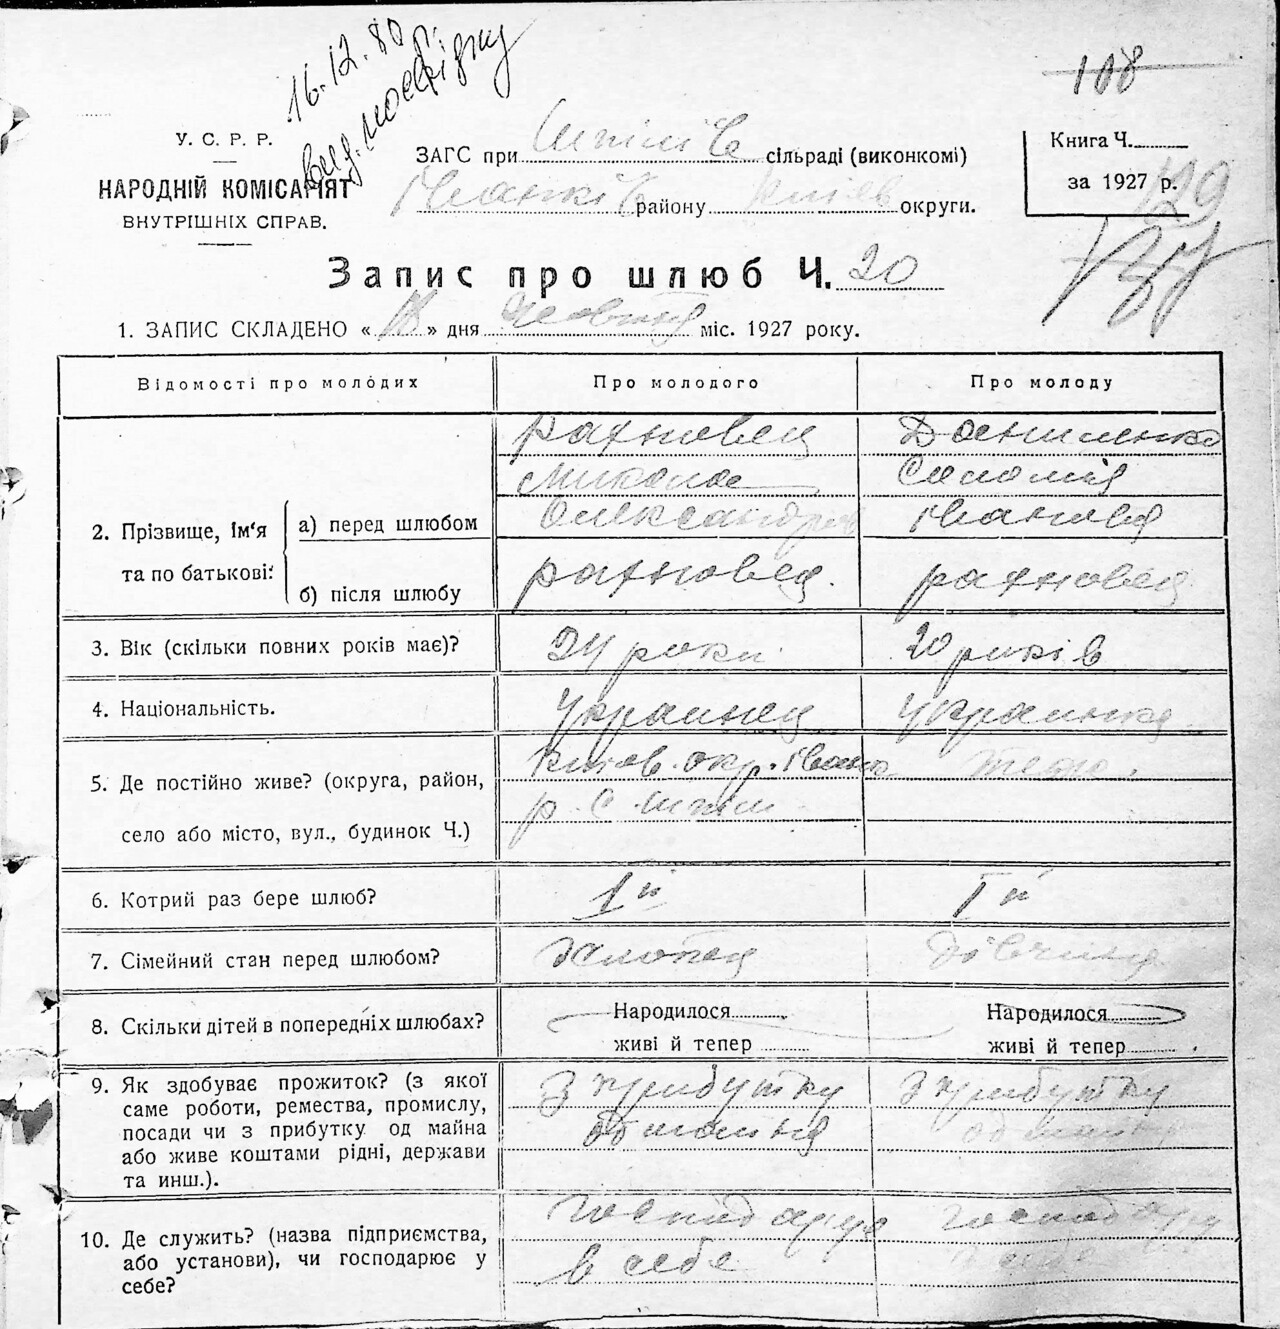 16.12.80 р.
вид. посвідку
108
У. С. Р. Р.
НАРОДНІЙ КОМІСАРІЯТ
ВНУТРІШНІХ СПРАВ.
ЗАГС при сільраді (виконкомі)
Іванків району Київ округи.
Книга Ч.
за 1927 р.
129
Запис про шлюб Ч. 20
1. ЗАПИС СКЛАДЕНО « » дня Жовтня міс. 1927 року.
Відомості про молодих Про молодого Про молоду
2. Прізвище, Ім'я та по батькові:
а) перед шлюбом
Рахновец Даниленко
Микола Соломія
Олександров Івановна
б) після шлюбу
Рахновец. Рахновец
3. Вік (скільки повних років має)? 24 роки 20 років
4. Національність. Украинец Украинка
5. Де постійно живе? (округа, район,
село або місто, вул., будинок Ч.)
Київ. окр. Іванк тоже.
р. с.
6. Котрий раз бере шлюб? 1й 1й
7. Сімейний стан перед шлюбом? Хлопец Дівчина
8. Скільки дітей в попередніх шлюбах? Народилося Народилося
живі й тепер живі й тепер
9. Як здобуває прожиток? (з якої
саме роботи, ремества, промислу,
посади чи з прибутку од майна
або живе коштами рідні, держави
та инш.).
З прибутку З прибутку
од майна од майна
10. Де служить? (назва підприємства,
або установи), чи господарює у
себе?
господарує господарує
в себе в себе